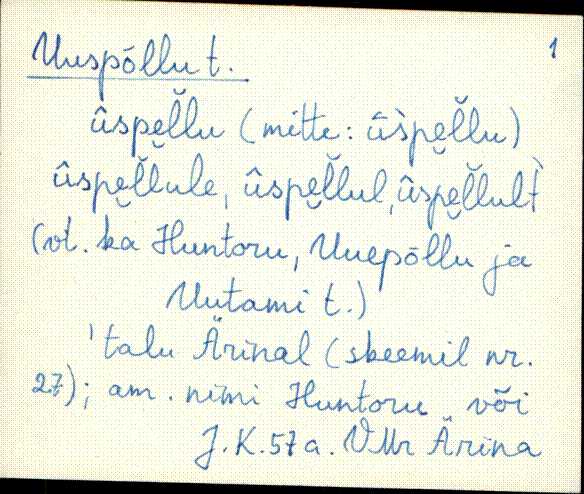 Uuspõllu t. 1
ûspe̮l̆lu (mitte: û̀spe̮l̆lu)
ûspe̮l̆lule, ûspe̮l̆lul, ûspe̮l̆lult̀
(vt. ka Huntoru, Uuepõllu ja
Uutami t.)
'talu Ärinal (skeemil nr.
27); am. nimi Huntoru või
J.K.57a. VMr Ärina